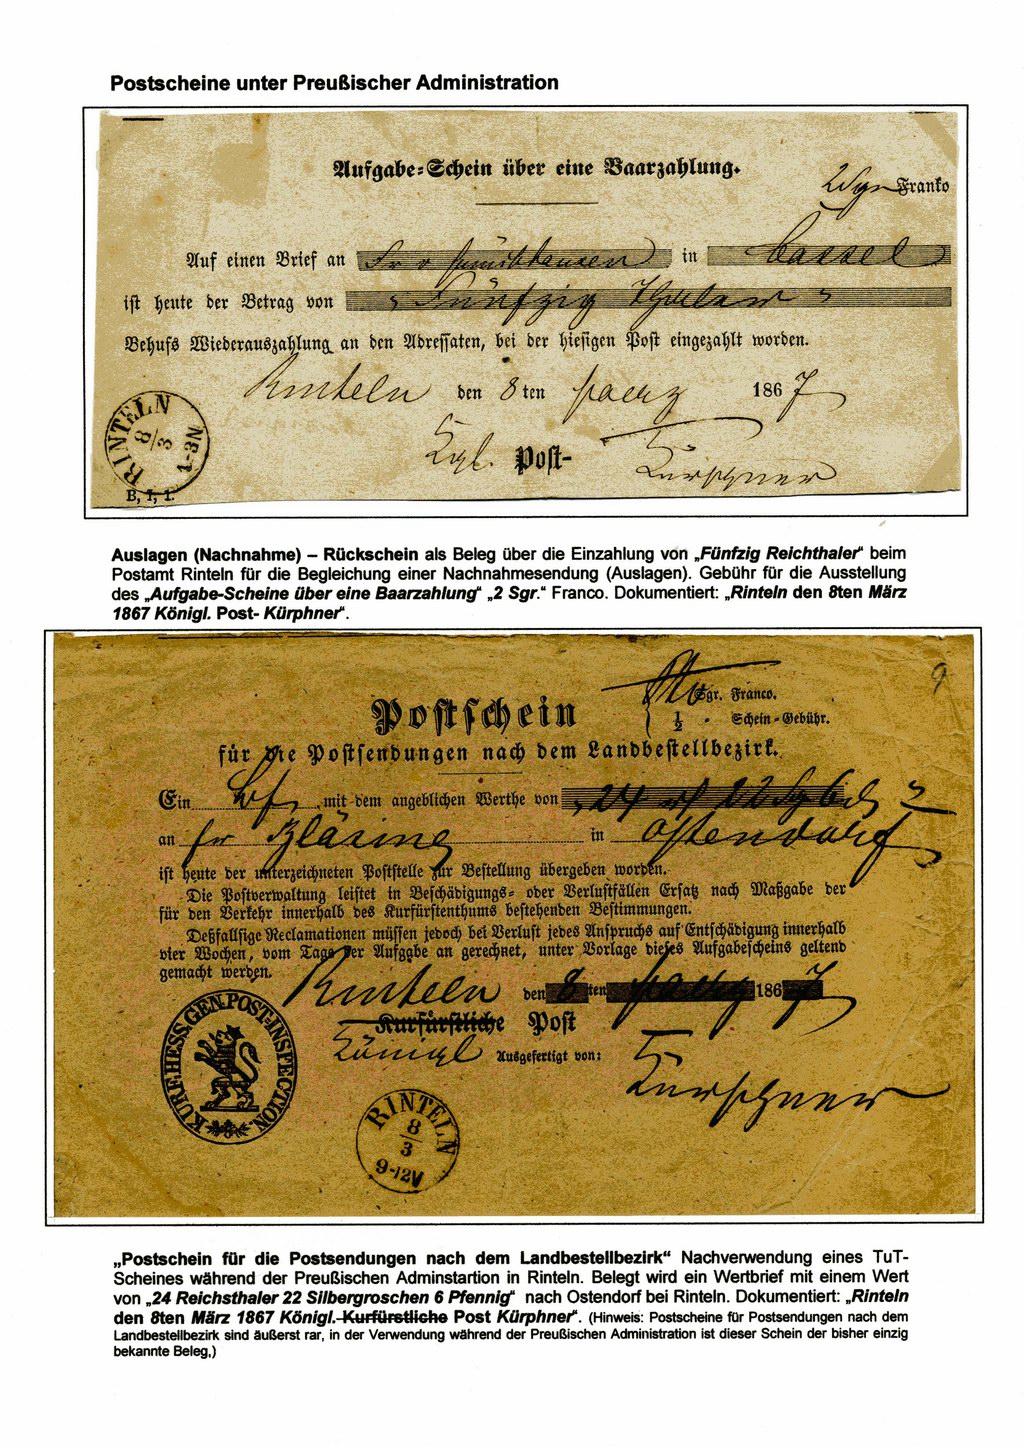 Postscheine unter Preußischer Administration
Aufgabe-Schein über eine Baarzahlung.
2 Sgr Franko
Auf einen Brief an Fr v in Cassel
ist heute der Betrag von Fünfzig Thaler
Behufs Wiederauszahlung an den Adressaten, bei der hiesigen Post eingezahlt worden.
Rinteln den 8 ten Maerz 1867
Kgl. Post-
Kürphner
RINTELN 8/3 N3-4
B, I, 1.
Auslagen (Nachnahme) – Rückschein als Beleg über die Einzahlung von „Fünfzig Reichthaler" beim
Postamt Rinteln für die Begleichung einer Nachnahmesendung (Auslagen). Gebühr für die Ausstellung
des „Aufgabe-Scheine über eine Baarzahlung" „2 Sgr." Franco. Dokumentiert: „Rinteln den 8ten März
1867 Königl. Post- Kürphner".
9
Sgr. Franco.
Postschein
½ " Schein-Gebühr.
für die Postsendungen nach dem Landbestellbezirk.
Ein Bf mit dem angeblichen Werthe von 24 rf 22 Sg 6
an Hr Bläsing in Ostendorf
ist heute der unterzeichneten Poststelle zur Bestellung übergeben worden.
Die Postverwaltung leistet in Beschädigungs- oder Verlustfällen Ersatz nach Maßgabe der
für den Verkehr innerhalb des Kurfürstenthums bestehenden Bestimmungen.
Deßfallsige Reclamationen müssen jedoch bei Verlust jedes Anspruchs auf Entschädigung innerhalb
vier Wochen, vom Tage der Aufgabe an gerechnet, unter Vorlage dieses Aufgabescheins geltend
gemacht werden.
Rinteln den 8 ten Maerz 1867
Kurfürstliche Post
Königl Ausgefertigt von:
Kürphner
KURF. HESS. GEN. POST-INSPECTION.
RINTELN 8/3 9-12V
„Postschein für die Postsendungen nach dem Landbestellbezirk" Nachverwendung eines TuT-
Scheines während der Preußischen Adminstartion in Rinteln. Belegt wird ein Wertbrief mit einem Wert
von „24 Reichsthaler 22 Silbergroschen 6 Pfennig" nach Ostendorf bei Rinteln. Dokumentiert: „Rinteln
den 8ten März 1867 Königl.-Kurfürstliche Post Kürphner". (Hinweis: Postscheine für Postsendungen nach dem
Landbestellbezirk sind äußerst rar, in der Verwendung während der Preußischen Administration ist dieser Schein der bisher einzig
bekannte Beleg,)